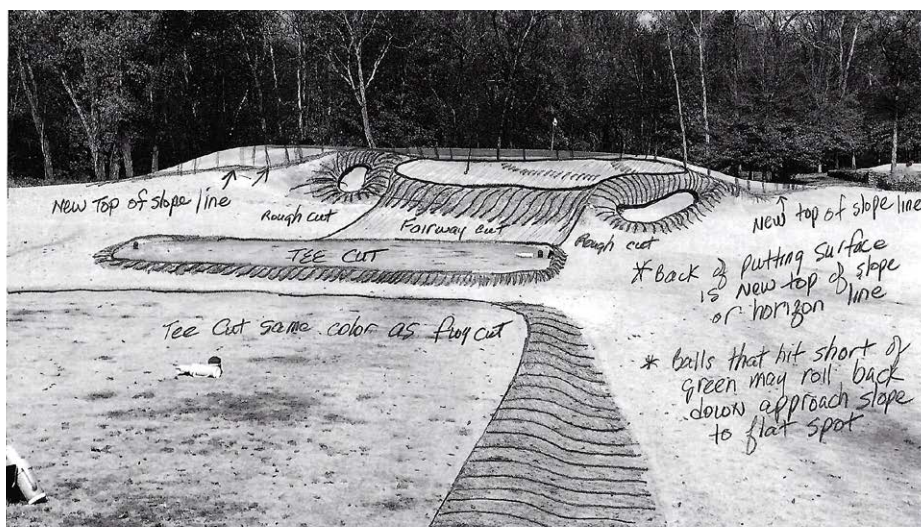 New Top of slope line
Rough cut
Fairway cut
Rough cut
New top of slope line
TEE CUT
* Back of putting surface
is New top of slope
or horizon line
Tee Cut same color as frog cut
* Balls that hit short of
green may roll back
down approach slope
to flat spot